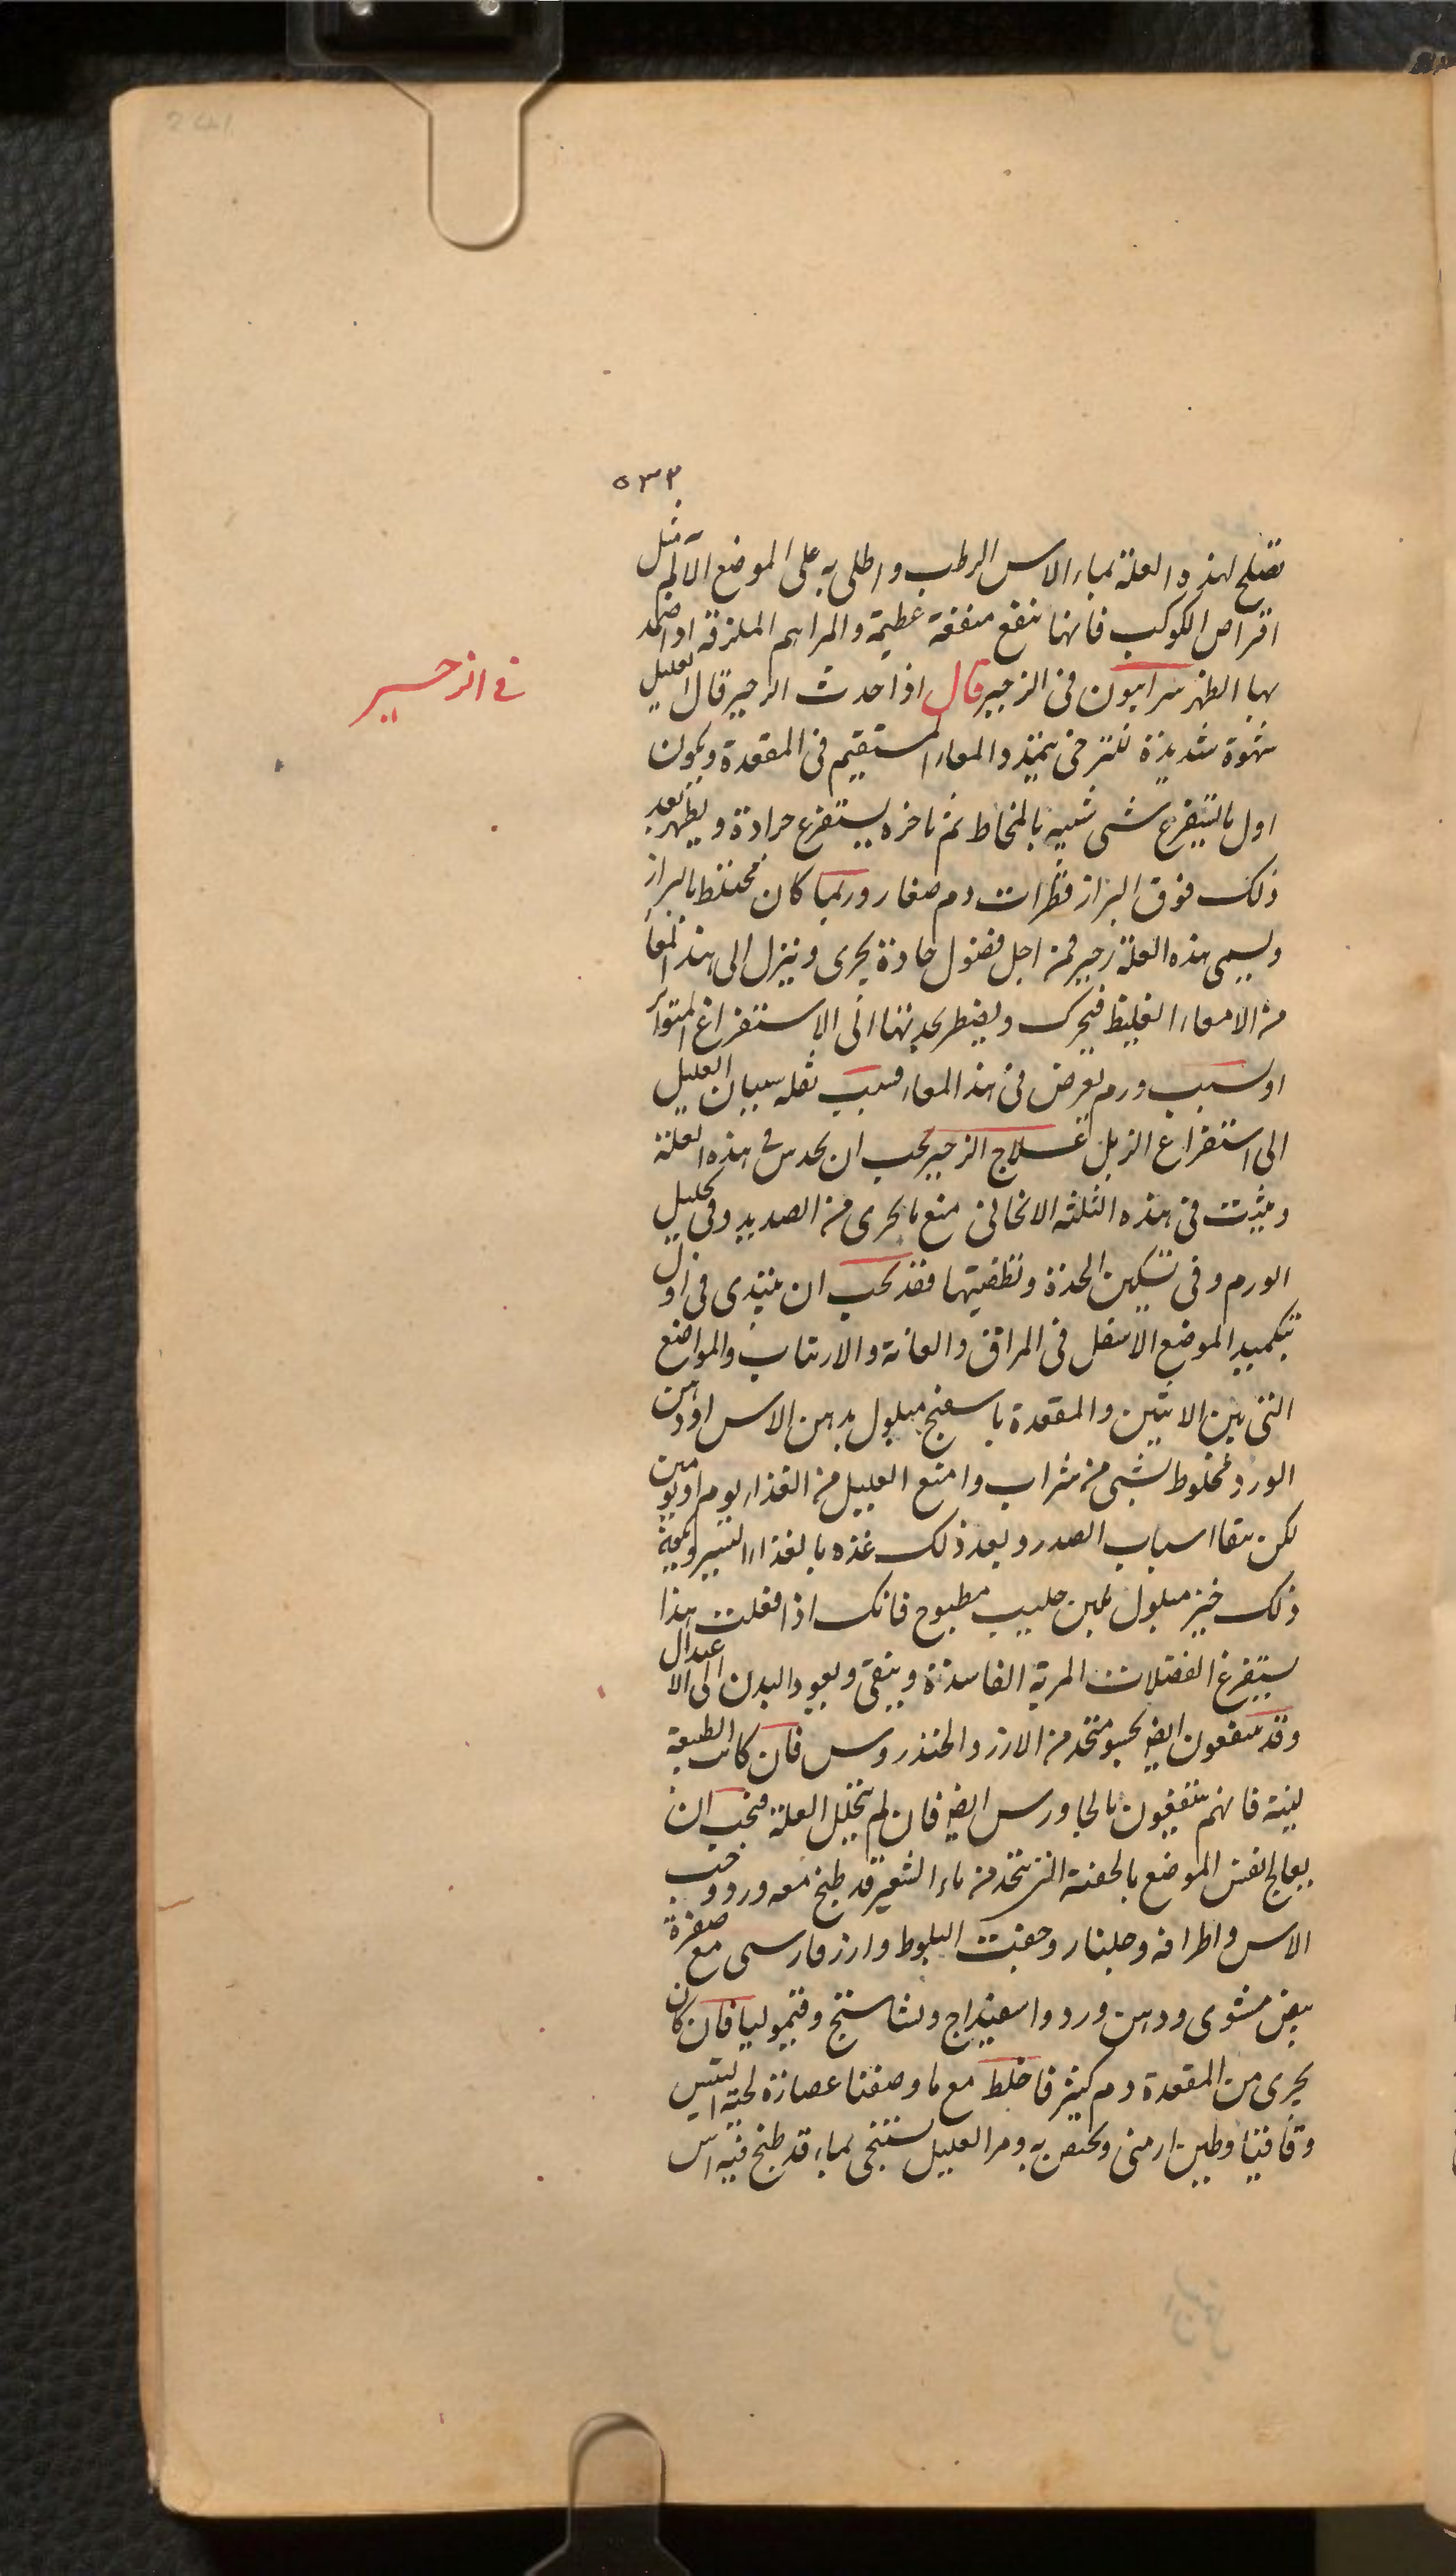 241
٥٣٣
تصلح لهذه العلة بماء الاس الرطب واطلى به على الموضع الالم مثل
اقراص الكوكب فانها تنفع منفعة عظيمة والمراهم الملزقة اذا ضمد
بها الظهر سرابيون فى الزحير قال اذا حدث الزحير قال العليل
شهوة شديدة للتبرز حتى يمتد والمعاء المستقيم فى المقعدة ويكون
اول ما يستفرغ شى شبيه بالمخاط ثم باخره يستفرغ حرادة ويظهر بعد
ذلك فوق البراز قطرات دم صغار وربما كان مختلط بالبراز
ويسمى هذه العلة زحير فمن اجل فضول حادة يجرى وينزل الى هذا المعا
من الامعاء الغليظ فيحرك ويضطر بحدتها الى الاستفراغ المتواتر
او بسبب ورم يعرض فى هذا المعاء فسبب ثقله سببان العليل
الى استفراغ الزبل علاج الزحير يجب ان يحدس فى هذه العلة
ويثبت فى هذه الثلثه الانحا فى منع ما يجرى من الصديد وفى تحليل
الورم وفى تسكين الحدة وتطفيتها فقد يجب ان يبتدى فى اول
تكميد الموضع الاسفل فى المراق والعانة والارنتاب والمواضع
التى بين الانثيين والمقعدة باسفنج مبلول بدهن الاس او دهن
الورد مخلوط بشى من شراب وامنع العليل من الغذاء يوم او يومين
لكن بقا اسباب الصدر وبعد ذلك غذه بالغذاء اليسير وبكمية
ذلك خبز مبلول بلبن حليب مطبوخ فانك اذا فعلت هذا
يستفرغ الفضلات المرية الفاسدة وينقى ويعود البدن الى الاعتدال
وقد ينتفعون ايضا بحسو متخذ من الارز والخندروس فان كانت الطبيعة
لينة فانهم ينتفعون بالجاورس ايضا فان لم يتحلل العلة فيجب ان
يعالج نفس الموضع بالحقنة التى تتخذ من ماء الشعير قد طبخ معه ورد وحب
الاس واطرافه وجلنار وجفت البلوط وارز فارسى مع صفرة
بيض مشوى ودهن ورد واسفيداج ونشاستج وقيموليا فان كان
يجرى من المقعدة دم كثير فاخلط مع ما وصفنا عصارة لحية التيس
وقاقيا وطين ارمنى ويحقن به ومر العليل يستنجى بماء قد طبخ فيه آس
فى الزحير